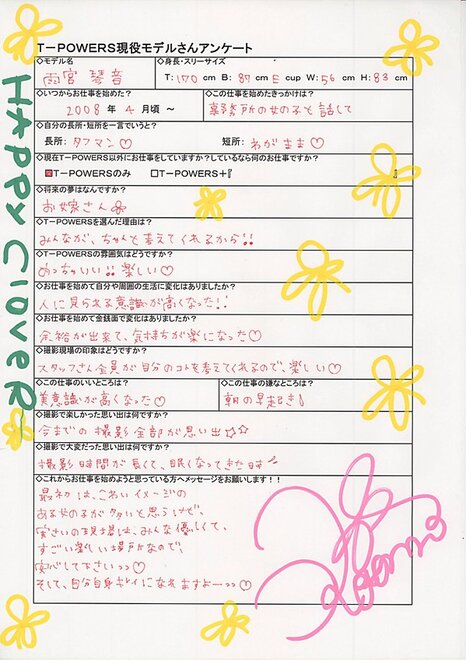 T-POWERS現役モデルさんアンケート
◇モデル名
雨宮 琴音
◇身長・スリーサイズ
T: 170 cm B: 87 E cup W: 56 cm H: 83 cm
◇いつからお仕事を始めた？
2008 年 4 月頃 ～
◇この仕事を始めたきっかけは？
事務所の女の子と話して
◇自分の長所・短所を一言でいうと？
長所: タフマン♡ 短所: わがまま♡
◇現在T-POWERS以外にお仕事をしていますか？しているなら何のお仕事ですか？
☑T-POWERSのみ □T-POWERS+『 』
◇将来の夢はなんですか？
お嫁さん
◇T-POWERSを選んだ理由は？
みんなが、ちゃんと考えてくれるから!!
◇T-POWERSの雰囲気はどうですか？
めっちゃいい!! 楽しい♡
◇お仕事を始めて自分や周囲の生活に変化はありましたか？
人に見られる意識が高くなった!!
◇お仕事を始めて金銭面で変化はありましたか？
余裕が出来て、気持ちが楽になった♡
◇撮影現場の印象はどうですか？
スタッフさん全員が自分のコトを考えてくれるので、楽しい♡
◇この仕事のいいところは？
美意識が高くなった♡
◇この仕事の嫌なところは？
朝の早起き!
◇撮影で楽しかった思い出は何ですか？
今までの撮影全部が思い出☆☆
◇撮影で大変だった思い出は何ですか？
撮影時間が長くて、眠くなってきた時
◇これからお仕事を始めようと思っている方へメッセージをお願いします！！
最初は、こわいイメージの
ある女の子が多いと思うけど、
実さいの現場は、みんな優しくて、
すごい楽しい場所なので、
安心して下さいっっ♡
そして、自分自身キレイになれますよーっっ♡
HAPPY ClOVER